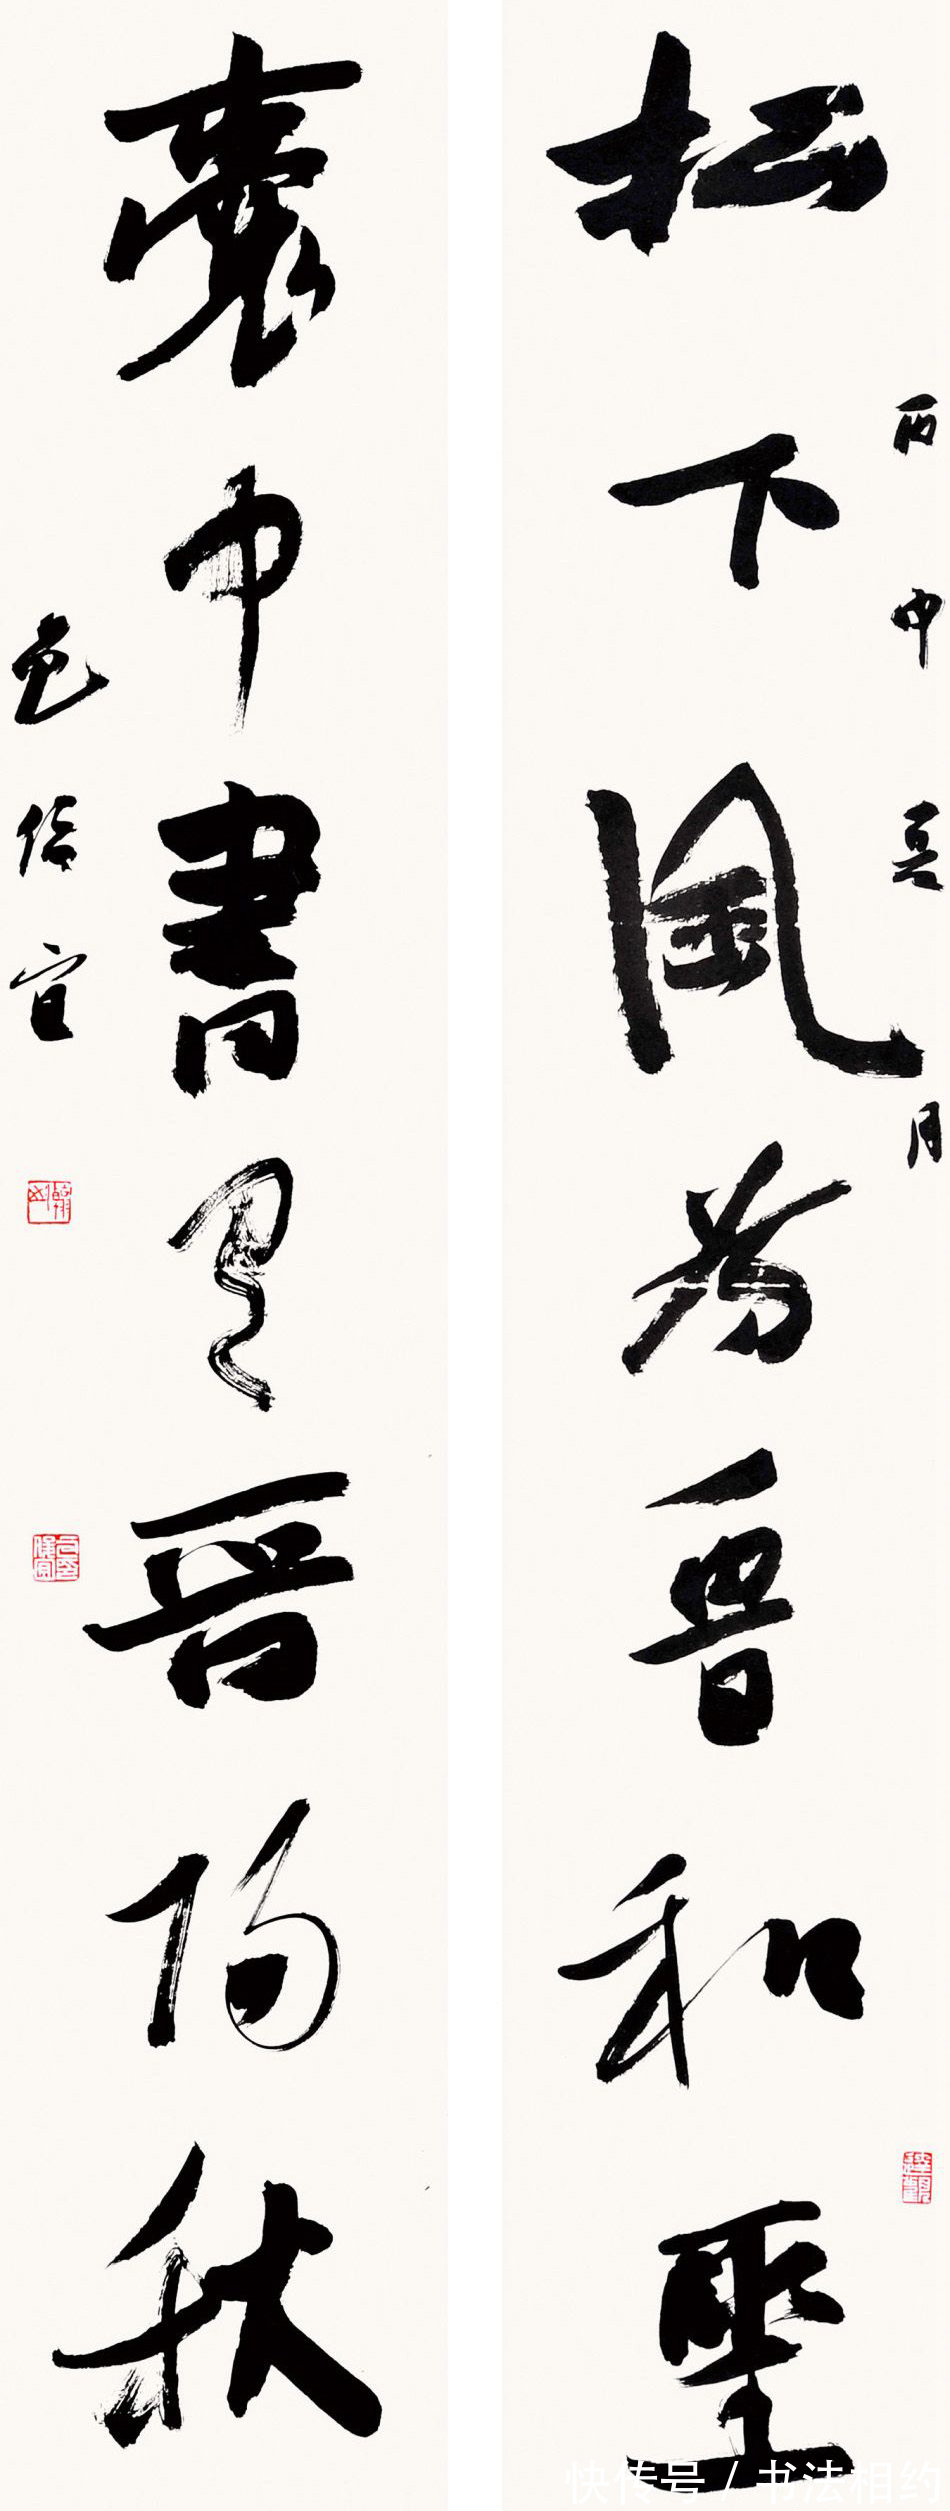 松下風為魯和聖
丙申夏月
囊中書是晉陽秋
包俊宜
快传号 / 书法相约